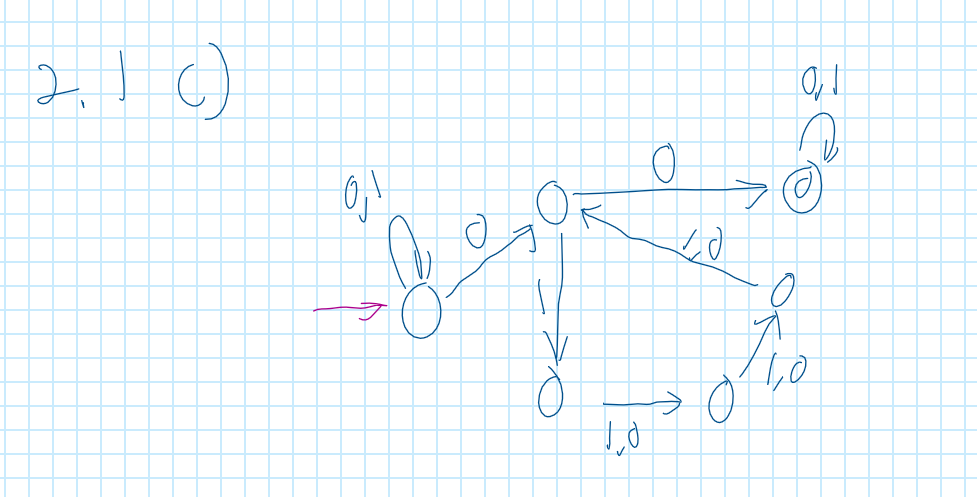 2.1 c)
0,1
0
0,1
0
1,0
1
1,0
1,0